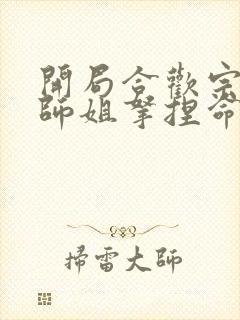 開局合歡宗
師姐拏捏命
掃雷大師